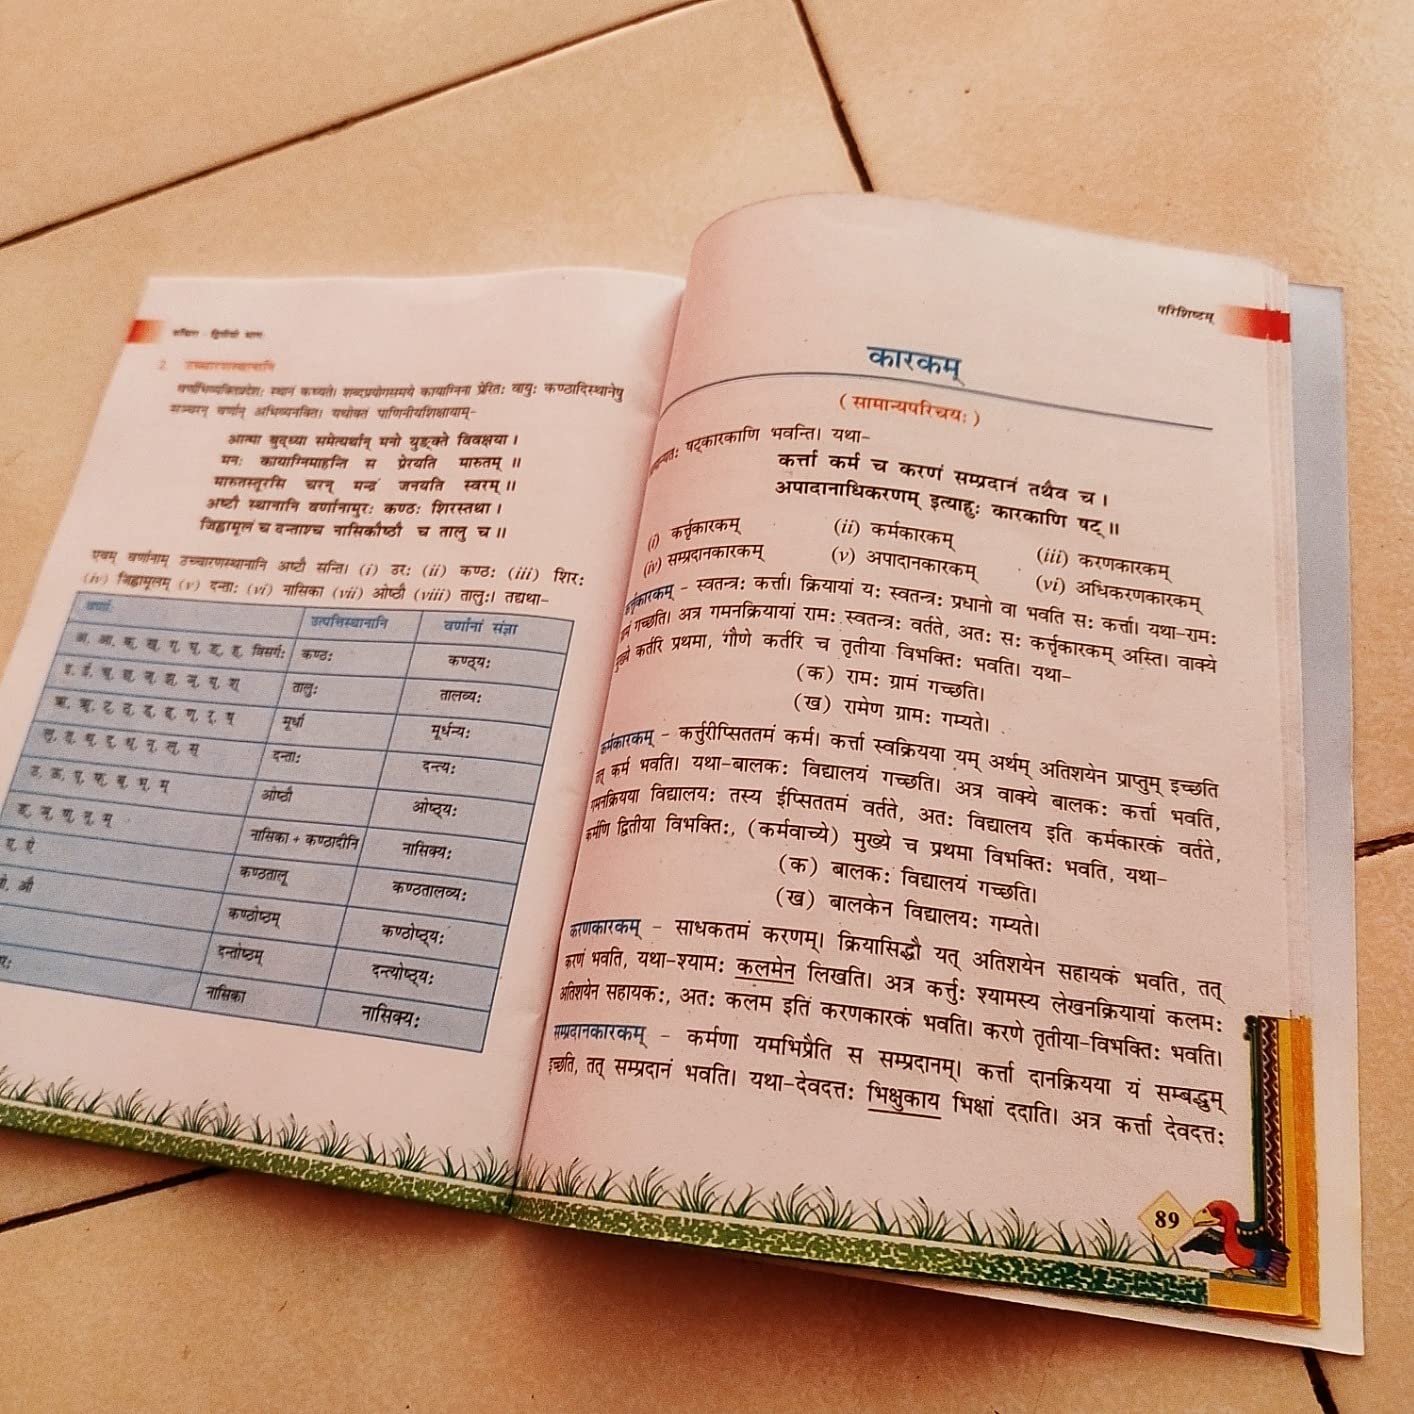 रुचिरा - द्वितीयो भागः
2. उच्चारणस्थानानि
वर्णाभिव्यक्तिप्रदेशः स्थानं कथ्यते। शब्दप्रयोगसमये कायाग्निना प्रेरितः वायुः कण्ठादिस्थानेषु
सञ्चरन् वर्णान् अभिव्यनक्ति। यथोक्तं पाणिनीयशिक्षायाम्-
आत्मा बुद्ध्या समेत्यर्थान् मनो युङ्क्ते विवक्षया।
मनः कायाग्निमाहन्ति स प्रेरयति मारुतम्॥
मारुतस्तूरसि चरन् मन्द्रं जनयति स्वरम्॥
अष्टौ स्थानानि वर्णानामुरः कण्ठः शिरस्तथा।
जिह्वामूलं च दन्ताश्च नासिकौष्ठौ च तालु च॥
एवम् वर्णानाम् उच्चारणस्थानानि अष्टौ सन्ति। (i) उरः (ii) कण्ठः (iii) शिरः
(iv) जिह्वामूलम् (v) दन्ताः (vi) नासिका (vii) ओष्ठौ (viii) तालुः। तद्यथा-
वर्णाः उत्पत्तिस्थानानि वर्णानां संज्ञा
अ, आ, क्, ख्, ग्, घ्, ङ्, ह्, विसर्गः कण्ठः कण्ठ्यः
इ, ई, च्, छ्, ज्, झ्, ञ्, य्, श् तालुः तालव्यः
ऋ, ॠ, ट्, ठ्, ड्, ढ्, ण्, र्, ष् मूर्धा मूर्धन्यः
लृ, त्, थ्, द्, ध्, न्, ल्, स् दन्ताः दन्त्यः
उ, ऊ, प्, फ्, ब्, भ्, म् ओष्ठौ ओष्ठ्यः
ङ्, ञ्, ण्, न्, म् नासिका + कण्ठादीनि नासिक्यः
ए, ऐ कण्ठतालू कण्ठतालव्यः
औ कण्ठोष्ठम् कण्ठोष्ठ्यः
दन्तोष्ठम् दन्त्योष्ठ्यः
नासिका नासिक्यः
परिशिष्टम्
कारकम्
(सामान्यपरिचयः)
षट्कारकाणि भवन्ति। यथा-
कर्त्ता कर्म च करणं सम्प्रदानं तथैव च।
अपादानाधिकरणम् इत्याहुः कारकाणि षट्॥
(i) कर्तृकारकम् (ii) कर्मकारकम् (iii) करणकारकम्
(iv) सम्प्रदानकारकम् (v) अपादानकारकम् (vi) अधिकरणकारकम्
कर्तृकारकम् - स्वतन्त्रः कर्त्ता। क्रियायां यः स्वतन्त्रः प्रधानो वा भवति सः कर्त्ता। यथा-रामः
ग्रामं गच्छति। अत्र गमनक्रियायां रामः स्वतन्त्रः वर्तते, अतः सः कर्तृकारकम् अस्ति। वाक्ये
मुख्ये कर्तरि प्रथमा, गौणे कर्तरि च तृतीया विभक्तिः भवति। यथा-
(क) रामः ग्रामं गच्छति।
(ख) रामेण ग्रामः गम्यते।
कर्मकारकम् - कर्त्तुरीप्सिततमं कर्म। कर्त्ता स्वक्रियया यम् अर्थम् अतिशयेन प्राप्तुम् इच्छति
तत् कर्म भवति। यथा-बालकः विद्यालयं गच्छति। अत्र वाक्ये बालकः कर्त्ता भवति,
गमनक्रियया विद्यालयः तस्य ईप्सिततमं वर्तते, अतः विद्यालय इति कर्मकारकं वर्तते,
कर्मणि द्वितीया विभक्तिः, (कर्मवाच्ये) मुख्ये च प्रथमा विभक्तिः भवति, यथा-
(क) बालकः विद्यालयं गच्छति।
(ख) बालकेन विद्यालयः गम्यते।
करणकारकम् - साधकतमं करणम्। क्रियासिद्धौ यत् अतिशयेन सहायकं भवति, तत्
करणं भवति, यथा-श्यामः कलमेन लिखति। अत्र कर्त्तुः श्यामस्य लेखनक्रियायां कलमः
अतिशयेन सहायकः, अतः कलम इति करणकारकं भवति। करणे तृतीया-विभक्तिः भवति।
सम्प्रदानकारकम् - कर्मणा यमभिप्रैति स सम्प्रदानम्। कर्त्ता दानक्रियया यं सम्बद्धुम्
इच्छति, तत् सम्प्रदानं भवति। यथा-देवदत्तः भिक्षुकाय भिक्षां ददाति। अत्र कर्त्ता देवदत्तः
89